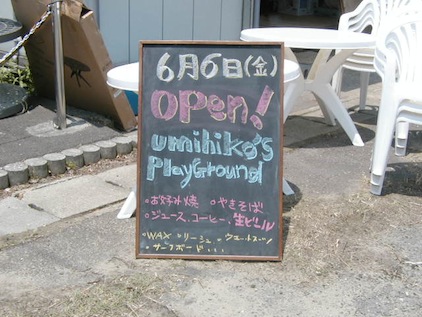 6月6日(金)
open!
umihiko's
PlayGround
•お好み焼 •やきそば
•ジュース.コーヒー.生ビール
•WAX •リーシュ •ウェットスーツ
•サーフボード...